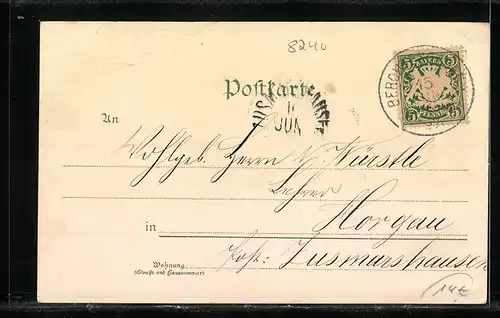 8240
Postkarte
BAYERN
5 5
5 PFENNIG 5
BERG
15
11
JUN
An
Wohlgeb. Herrn N. Würstle
Lehrer
in Horgau
Post: Zusmarshausen
Wohnung
(Straße und Hausnummer)
14€